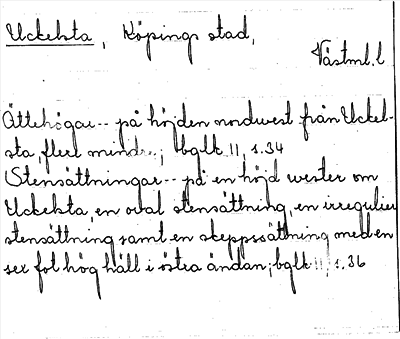 Uckelsta, Köpings stad,
Västml. l
Ättehögar -- på höjden nordvest från Uckel-
sta, flere mindre; bglk II, s. 34
Stensättningar -- på en höjd vester om
Uckelsta, en oval stensättning, en irregulier
stensättning samt en skeppssättning med en
sex fot hög häll i östra ändan; bglk II, s. 36